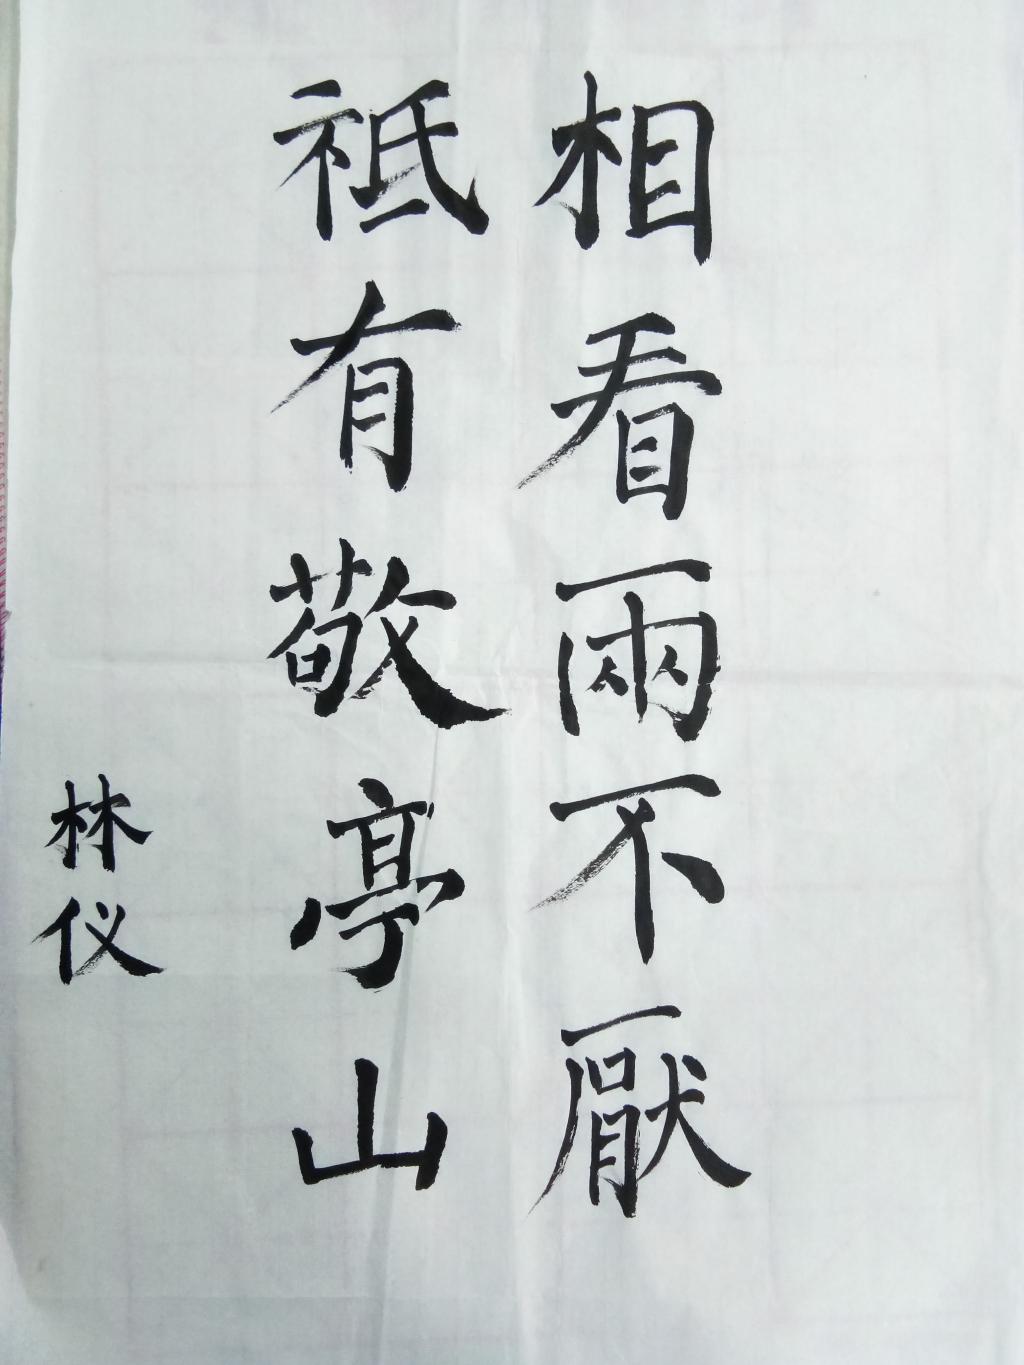 相看兩不厭
祗有敬亭山
林仪